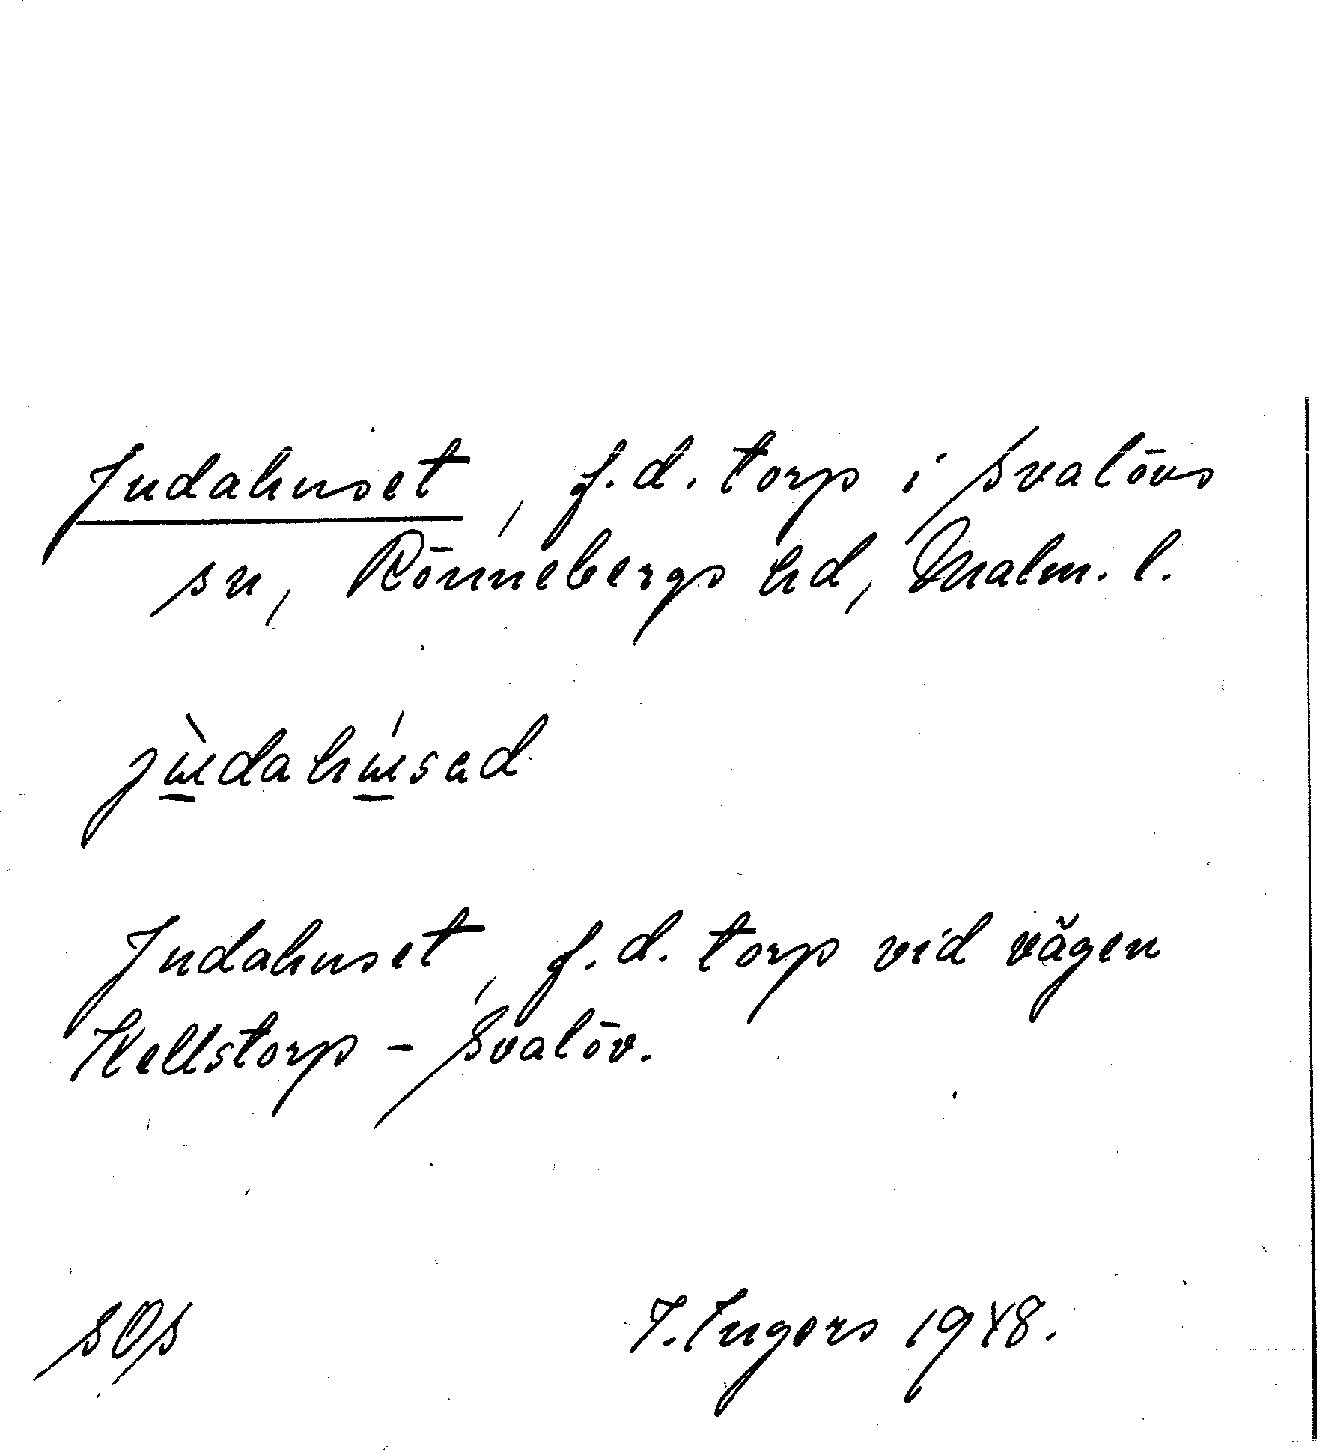 Judahuset, f.d. torp i Svalövs
sn, Rönnebergs hd, Malm. l.
Judahuset, f.d. torp vid vägen
Hellstorp - Svalöv.
I. Ingers 1948.